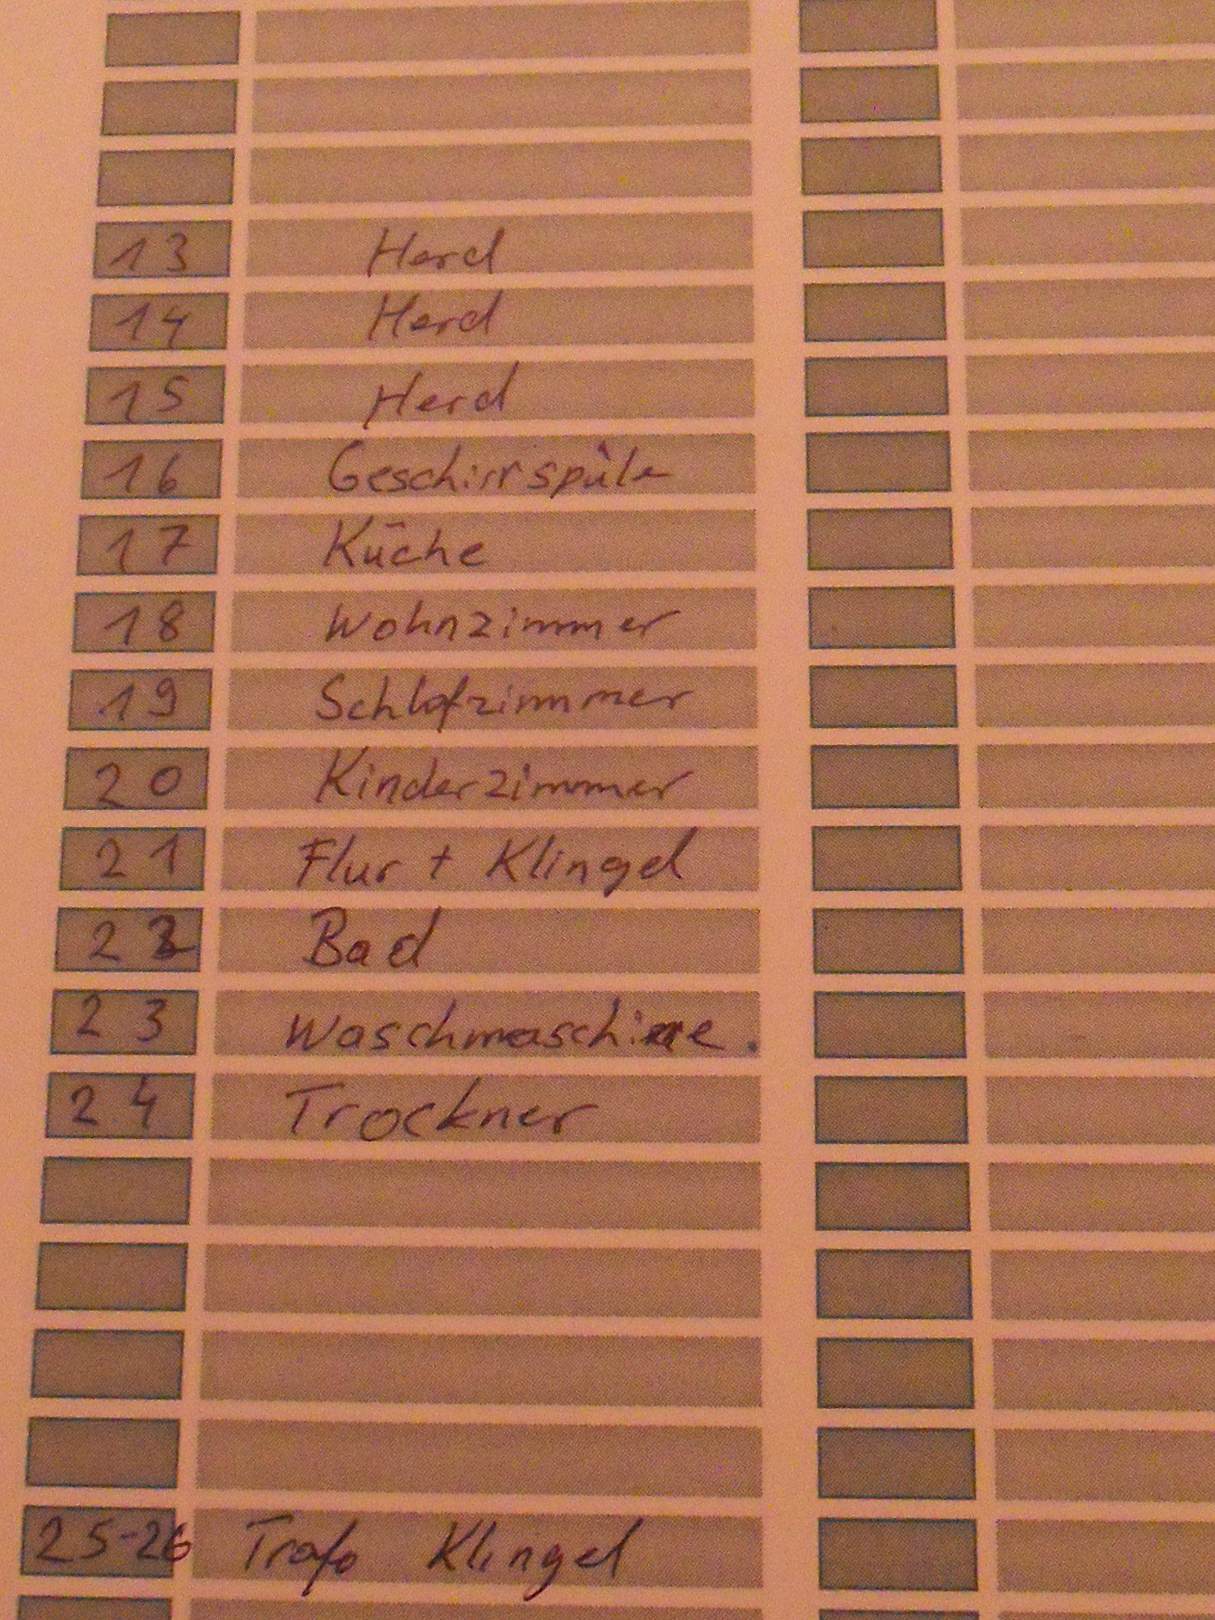 13 Herd
14 Herd
15 Herd
16 Geschirrspüle
17 Küche
18 Wohnzimmer
19 Schlafzimmer
20 Kinderzimmer
21 Flur + Klingel
22 Bad
23 Waschmaschine.
24 Trockner
25-26 Trafo Klingel